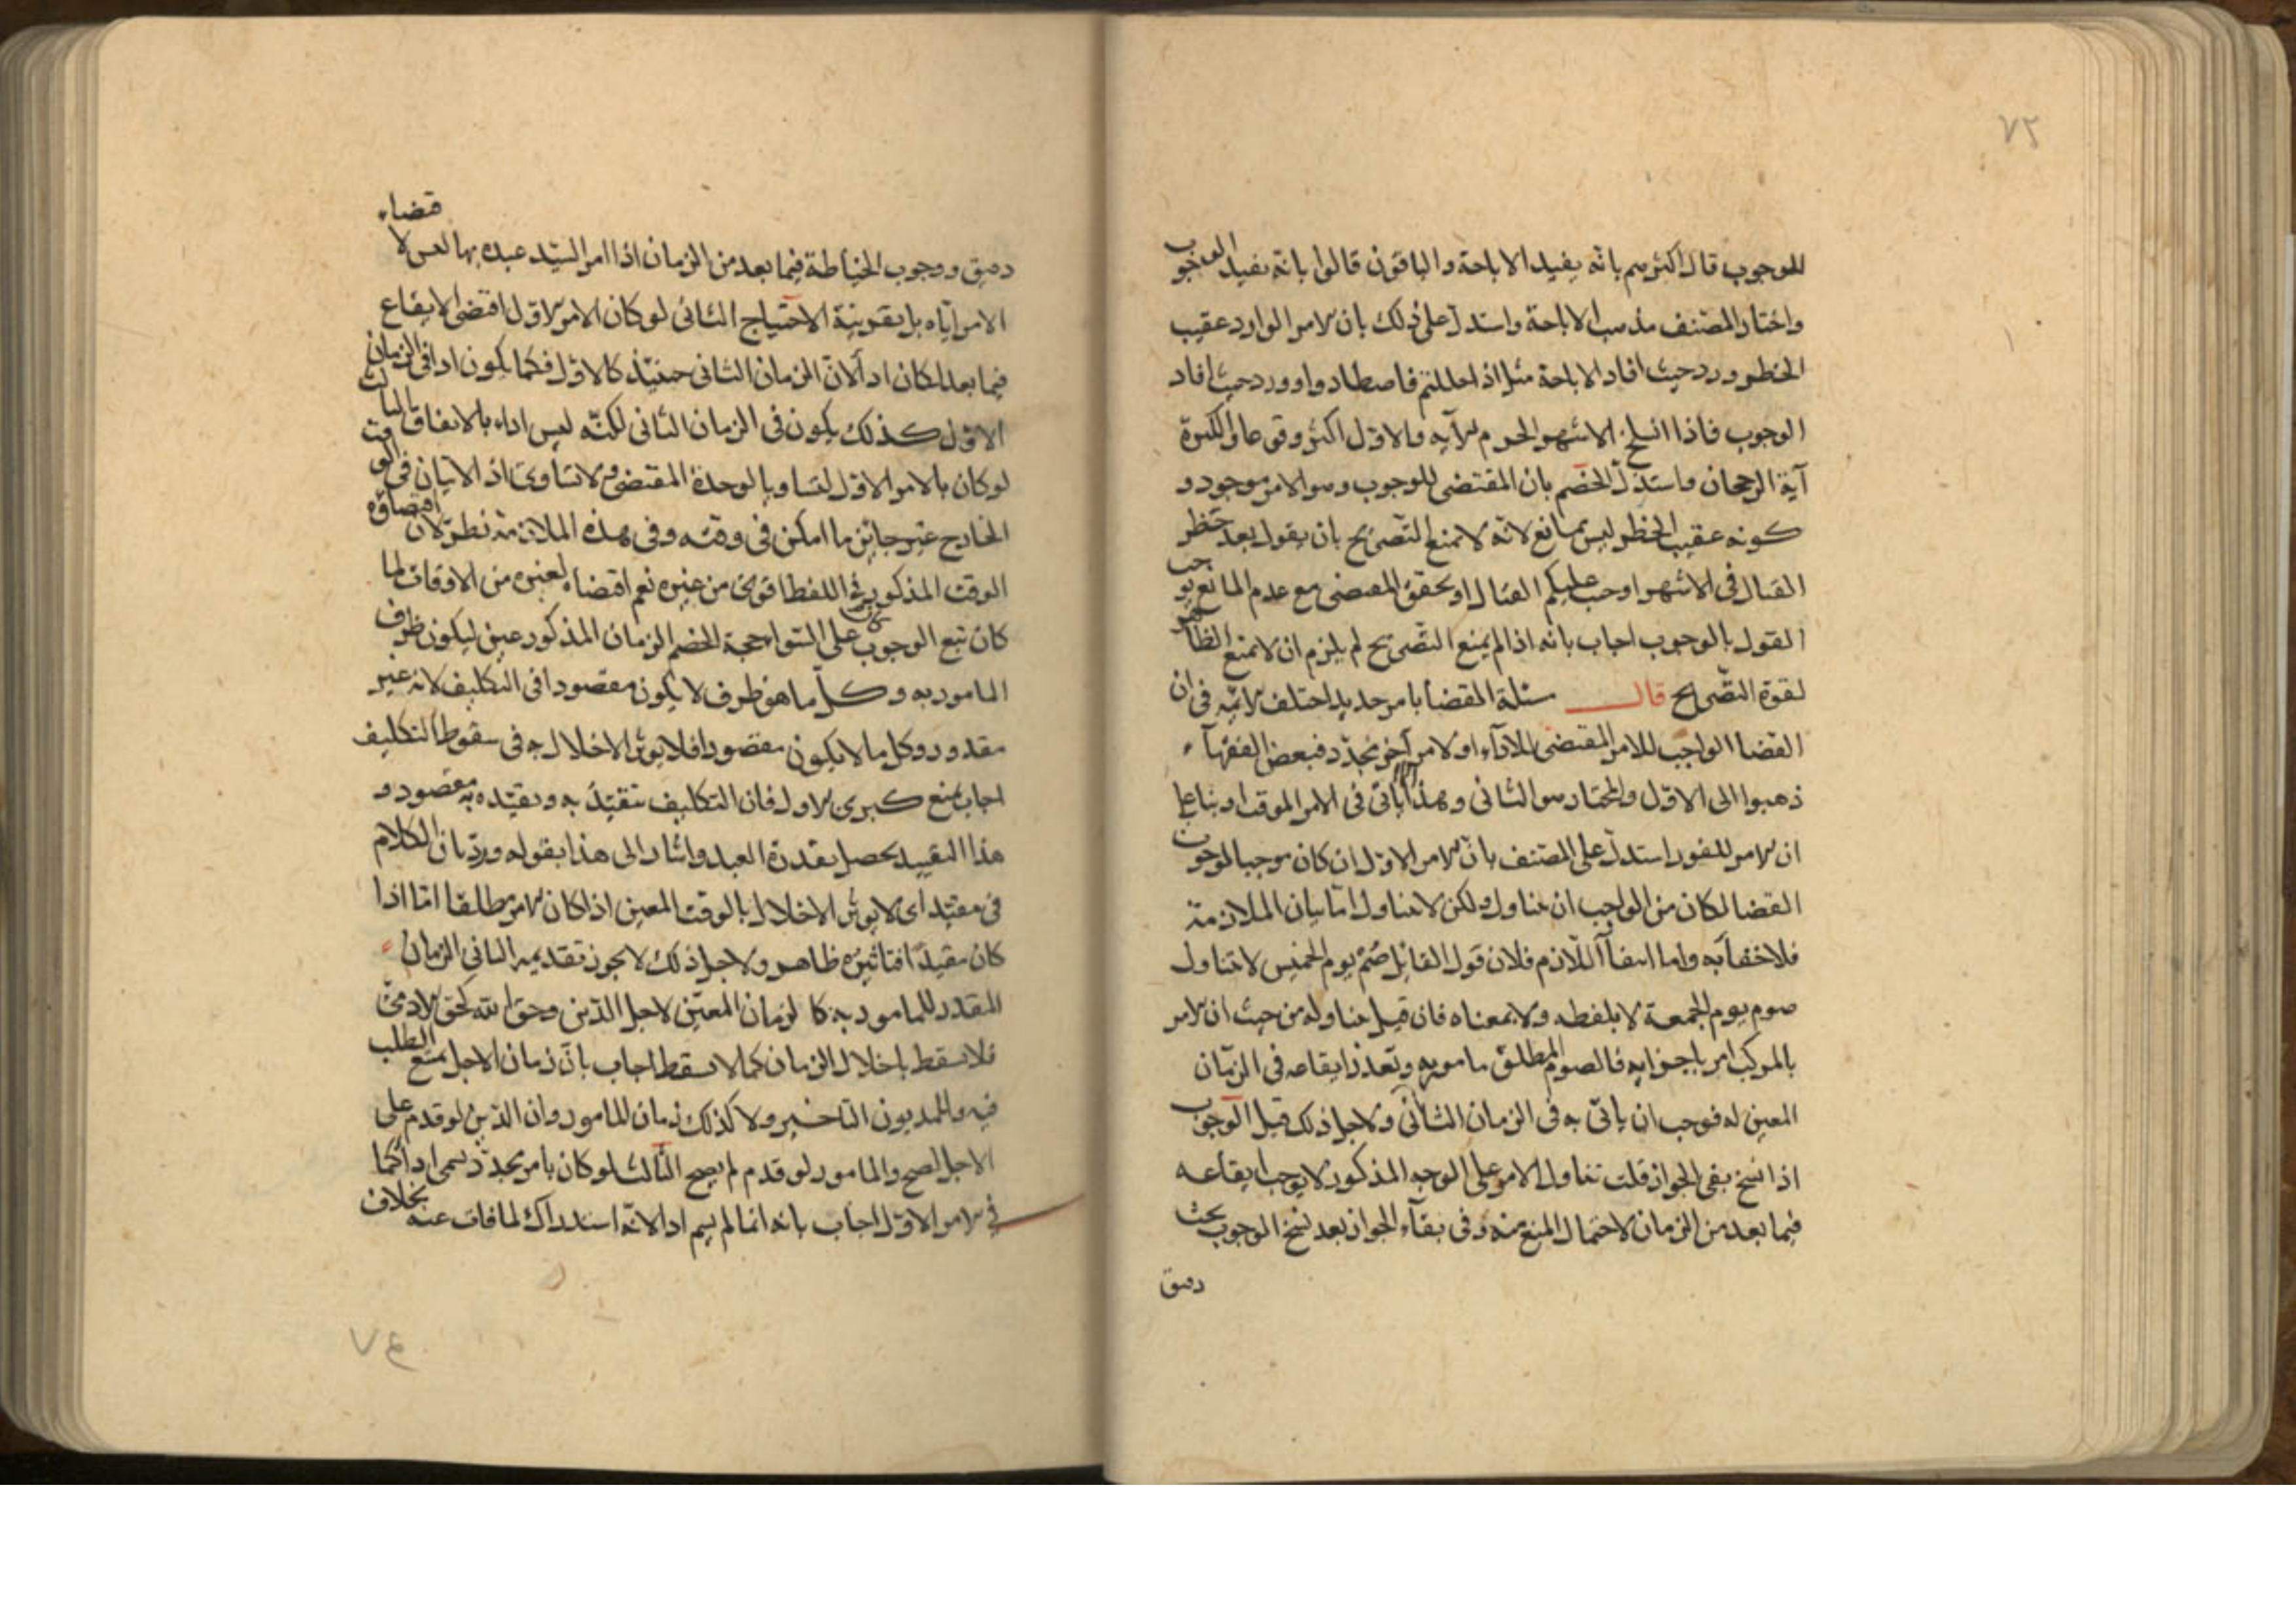 ٧٢
للوجوب قال اكثرهم بانه يفيد الاباحة والباقون قالوا بانه يفيد الوجوب
واختار المصنف مذهب الاباحة واستدل على ذلك بان الامر الوارد عقيب
الحظر ورد حيث افاد الاباحة مثل اذا حللتم فاصطادوا وورد حيث افاد
الوجوب فاذا انسلخ الاشهر الحرم الآية والاول اكثر وقوعا والكثرة
آية الرجحان واستدل الخصم بان المقتضى للوجوب وهو الامر موجود و
كونه عقيب الحظر ليس بمانع لانه لا يمنع التصريح بان يقول بعد حظر
القتال فى الاشهر اوجب عليكم القتال او تحقق المقتضى مع عدم المانع يوجب
القول بالوجوب اجاب بانه اذا لم يمنع التصريح لم يلزم ان لا يمنع الظاهر
لقوة التصريح قال مسئلة القضا بامر جديد اختلف الائمة فى ان
القضا الواجب للامر المقتضى للاداء او لامر آخر يجدد فبعض الفقهآء
ذهبوا الى الاول والمختار هو الثانى وهذا ياتى فى الامر الموقت او بنا على
ان الامر للفور استدل على المصنف بان الامر الاول ان كان موجبا لوجوب
القضا لكان من الواجب ان يتناوله ولكن لا يتناوله اما بيان الملازمة
فلا خفآء به واما انتفآ اللازم فلان قول القائل صم يوم الخميس لا يتناول
صوم يوم الجمعة لا بلفظه ولا بمعناه فان قيل يتناوله من حيث ان الامر
بالمركب امر باجزايه فالصوم المطلق مامور به وتعذر ايقاعه فى الزمان
المعين له فوجب ان ياتى به فى الزمان الثانى ولاجل ذلك قيل الوجوب
اذا نسخ بقى الجواز قلت تناول الامر على الوجه المذكور لا يوجب ايقاعه
فيما بعد من الزمان لاحتمال المنع منه وفى بقآء الجواز بعد نسخ الوجوب بحث
دقيق
دقيق ووجوب الخياطة فيما بعد من الزمان اذا امر السيد عبده بها ليس لا قضاء
الامر اياه بل بقرينة الاحتياج الثانى لو كان الامر الاول اقتضى الايقاع
فيما بعد لكان ادا لان الزمان الثانى حينئذ كالاول فكما يكون ادا فى الزمان
الاول كذلك يكون فى الزمان الثانى لكنه ليس اداء بالاتفاق الثالث
لو كان بالامر الاول لتساويا لوحدة المقتضى ولا تساوى اذ الاتيان فى الوقت
الخارج غير جائز ما امكن فى وقته وفى هذه الملازمة نظر لان اقتضاؤه
الوقت المذكور فى اللفظ اقوى من غيره نعم اقتضاه لغيره من الاوقات لما
كان تبع الوجوب كان على السواء حجة الخصم الزمان المذكور عين ليكون ظرف
المامور به وكل ما هو ظرف لا يكون مقصودا فى التكليف لانه غير
مقدور وكل ما لا يكون مقصودا فلا يوثر الاخلال به فى سقوط التكليف
اجاب بمنع كبرى الاول فان التكليف تتقيد به وتقيده به مقصود و
هذا التقييد يحصل بقدرة العبد واشار الى هذا بقوله ورد بان الكلام
فى مقيد اى لا يوثر الاخلال بالوقت المعين اذا كان الامر مطلقا اما اذا
كان مقيدا فتاثيره ظاهر ولاجل ذلك لا يجوز تقديمه الثانى الزمان
المقدر للمامور به كالزمان المعين لاجل الدين وحق الله كحق الادمى
فلا يسقط باخلال الزمان كما لا يسقط اجاب بان زمان الاجل يمنع الطلب
فيه وللمديون التاخير ولا كذلك زمان المامور وان الدين لو قدم على
الاجل لصح والمامور لو قدم لم يصح الثالث لو كان بامر يجدد لسمى ادا كما
فى الامر الاول اجاب بانه انما لم يسم ادا لانه استدراك لما فات عنه بخلاف
٧٤